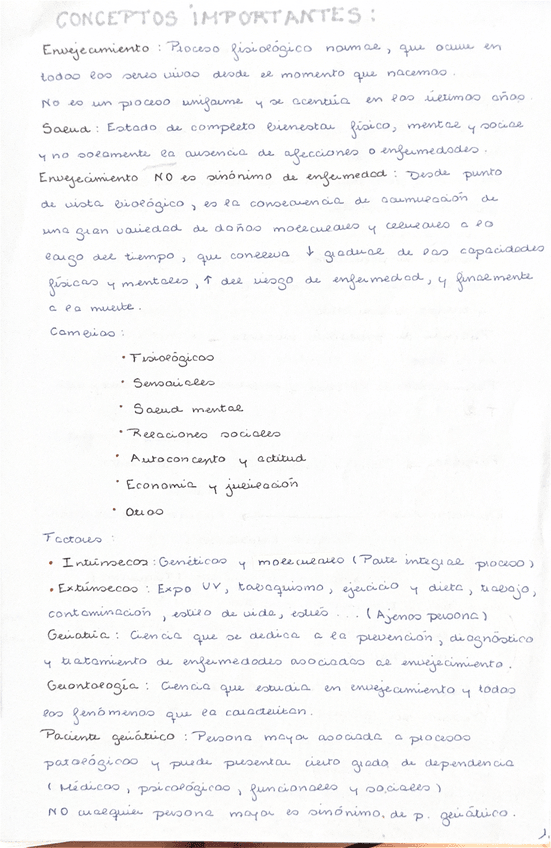 CONCEPTOS IMPORTANTES:
Envejecimiento: Proceso fisiológico normal, que ocurre en
todos los seres vivos desde el momento que nacemos.
No es un proceso uniforme y se acentúa en los últimos años.
Salud: Estado de completo bienestar físico, mental y social
y no solamente la ausencia de afecciones o enfermedades.
Envejecimiento NO es sinónimo de enfermedad: Desde punto
de vista biológico, es la consecuencia de acumulación de
una gran variedad de daños moleculares y celulares a lo
largo del tiempo, que conlleva ↓ gradual de las capacidades
físicas y mentales, ↑ del riesgo de enfermedad, y finalmente
a la muerte.
Cambios:
• Fisiológicos
• Sensoriales
• Salud mental
• Relaciones sociales
• Autoconcepto y actitud
• Economía y jubilación
• Otros
Factores:
• Intrínsecos: Genéticos y moleculares (Parte integral proceso)
• Extrínsecos: Expo UV, tabaquismo, ejercicio y dieta, trabajo,
contaminación, estilo de vida, estrés... (Ajenos persona)
Geriatría: Ciencia que se dedica a la prevención, diagnóstico
y tratamiento de enfermedades asociadas al envejecimiento.
Gerontología: Ciencia que estudia en envejecimiento y todos
los fenómenos que la caracterizan.
Paciente geriátrico: Persona mayor asociada a procesos
patológicos y puede presentar cierto grado de dependencia
(Médicos, psicológicos, funcionales y sociales)
NO cualquier persona mayor es sinónimo de p. geriátrico.
1.